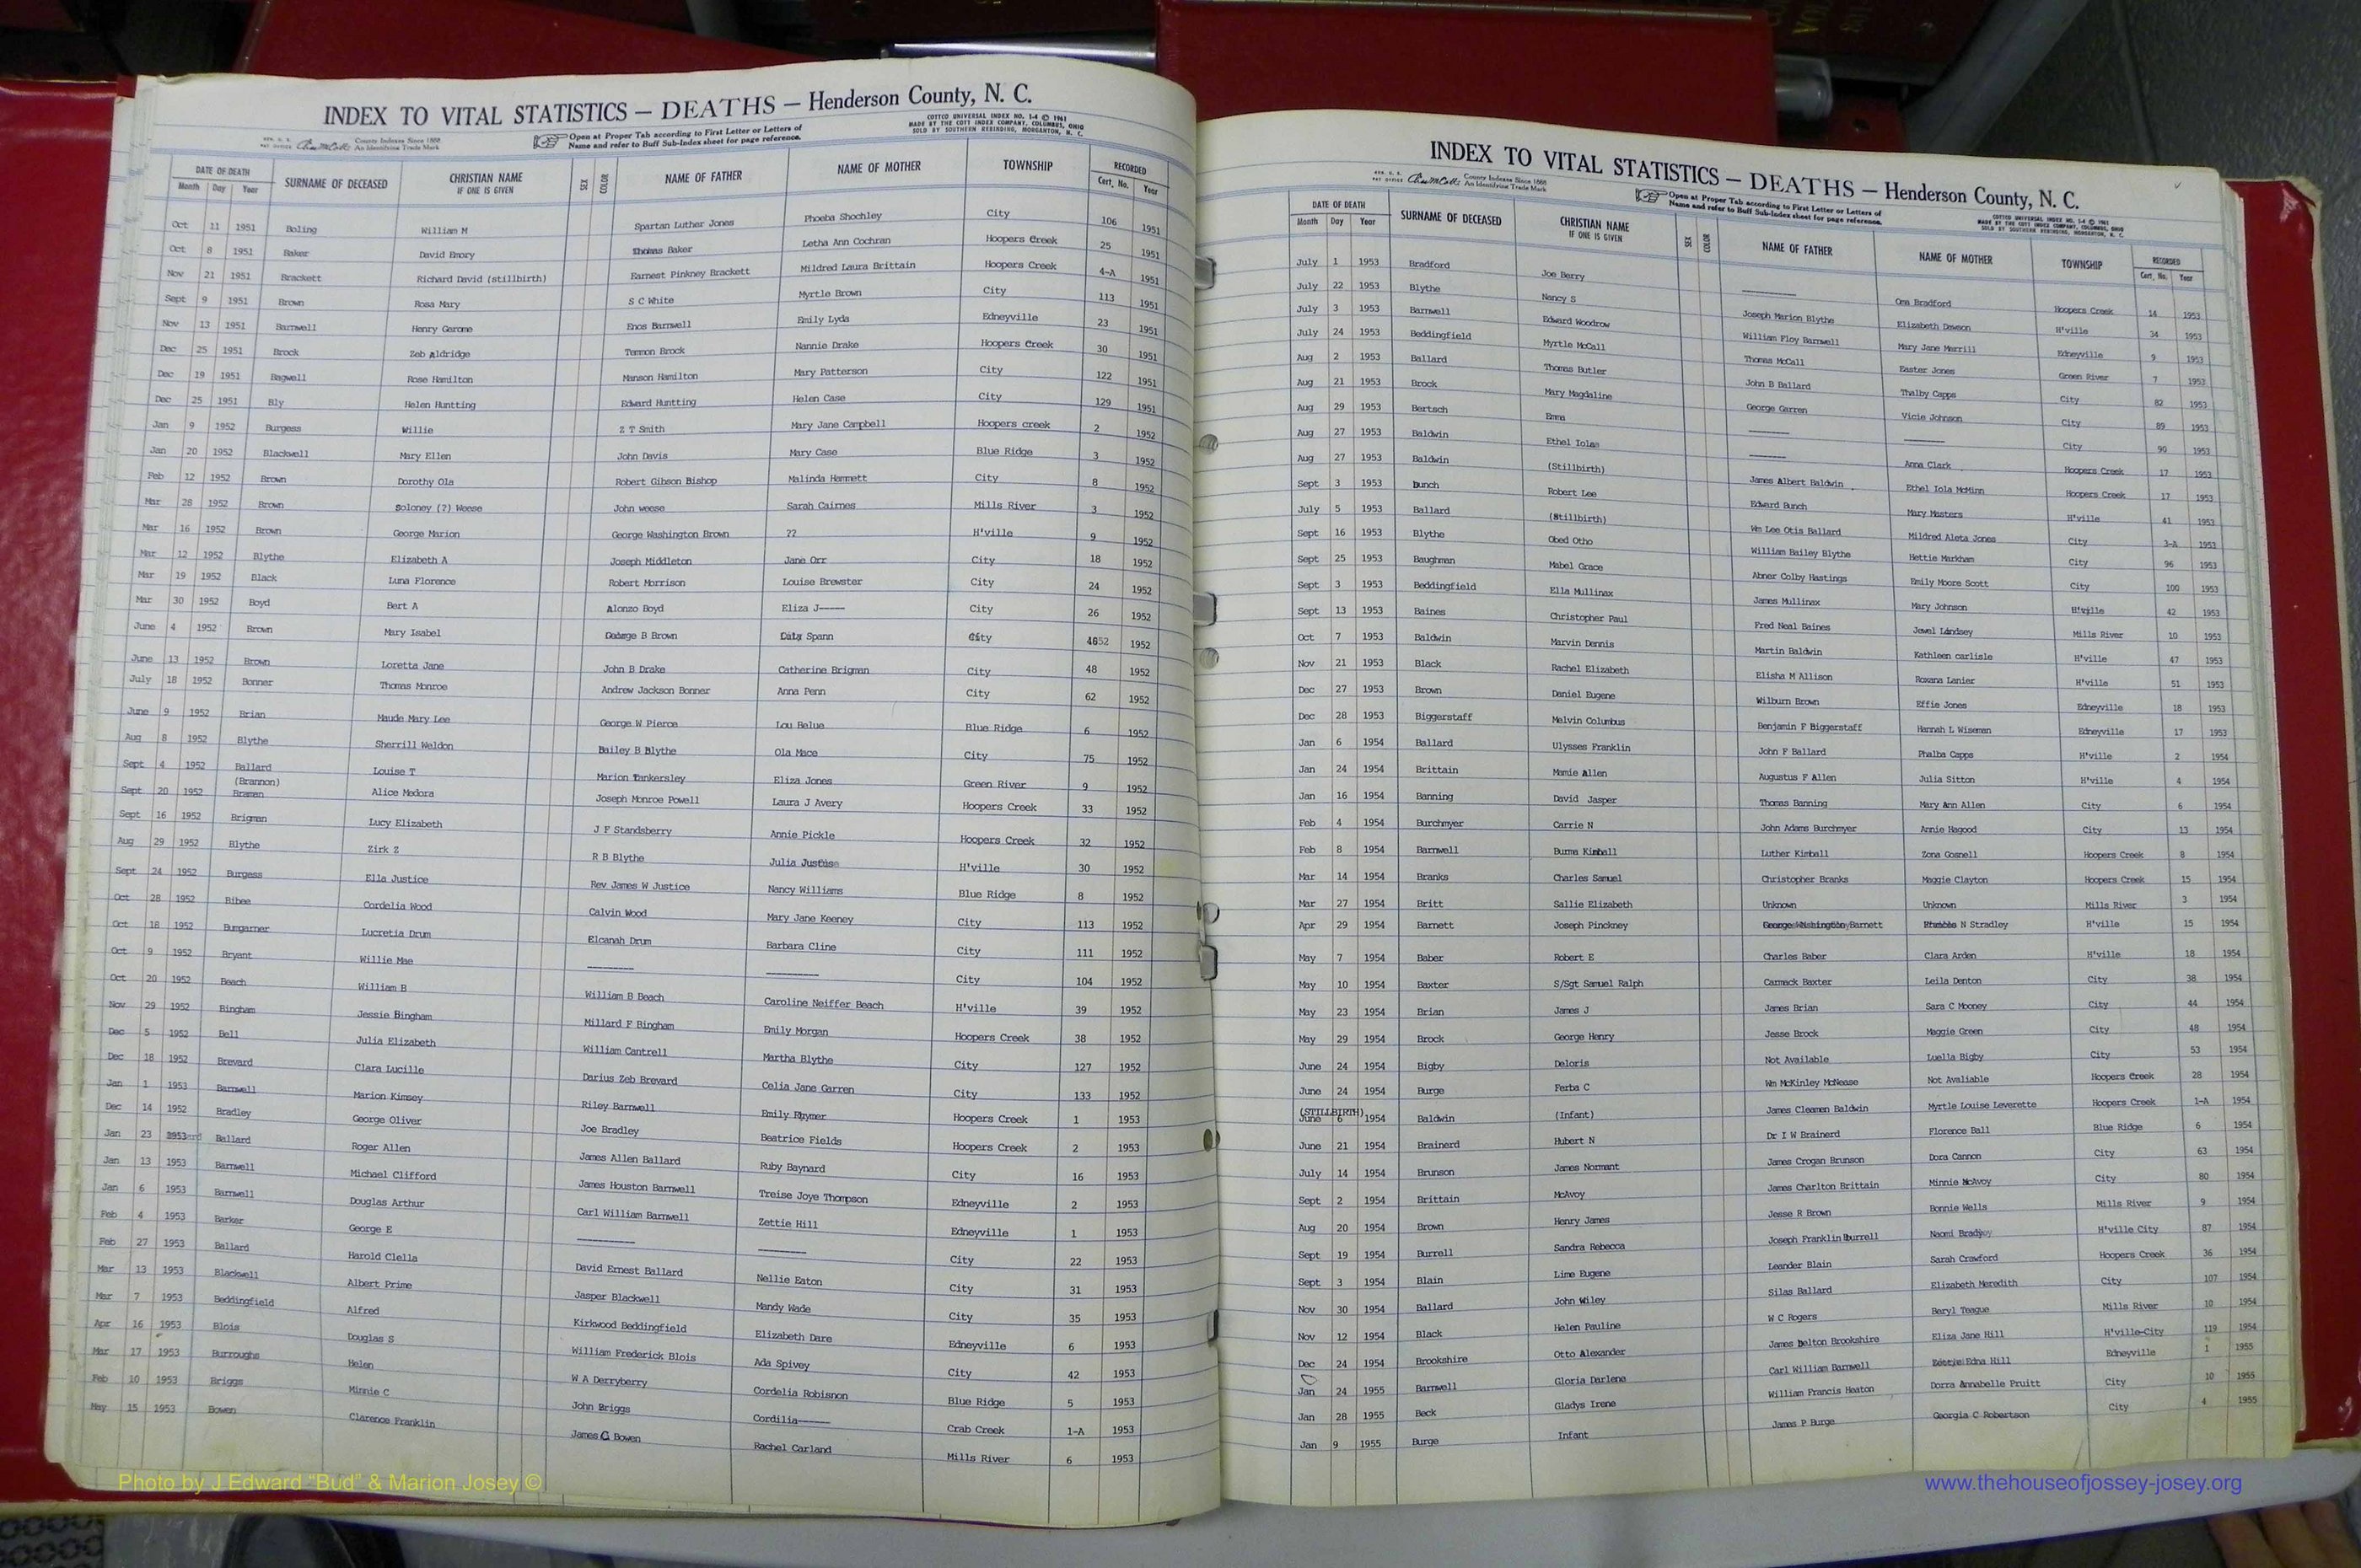 INDEX TO VITAL STATISTICS — DEATHS — Henderson County, N. C.
County Indexes Since 1888
An Identifying Trade Mark
Open at Proper Tab according to First Letter or Letters of
Name and refer to Buff Sub-Index sheet for page reference.
COTTCO UNIVERSAL INDEX NO. 1-4 © 1961
MADE BY THE COTT INDEX COMPANY, COLUMBUS, OHIO
SOLD BY SOUTHERN REBINDING, MORGANTON, N. C.
DATE OF DEATH SURNAME OF DECEASED CHRISTIAN NAME IF ONE IS GIVEN SEX COLOR NAME OF FATHER NAME OF MOTHER TOWNSHIP RECORDED
Month Day Year Cert. No. Year
Oct 11 1951 Boling William M Spartan Luther Jones Phoeba Shochley City 106 1951
Oct 8 1951 Baker David Emory Thomas Baker Letha Ann Cochran Hoopers Creek 25 1951
Nov 21 1951 Brackett Richard David (stillbirth) Earnest Pinkney Brackett Mildred Laura Brittain Hoopers Creek 4-A 1951
Sept 9 1951 Brown Rosa Mary S C White Myrtle Brown City 113 1951
Nov 13 1951 Barnwell Henry Gerome Enos Barnwell Emily Lyda Edneyville 23 1951
Dec 25 1951 Brock Zeb Aldridge Termon Brock Nannie Drake Hoopers Creek 30 1951
Dec 19 1951 Bagwell Rose Hamilton Manson Hamilton Mary Patterson City 122 1951
Dec 25 1951 Bly Helen Huntting Edward Huntting Helen Case City 129 1951
Jan 9 1952 Burgess Willie Z T Smith Mary Jane Campbell Hoopers creek 2 1952
Jan 20 1952 Blackwell Mary Ellen John Davis Mary Case Blue Ridge 3 1952
Feb 12 1952 Brown Dorothy Ola Robert Gibson Bishop Malinda Hammett City 8 1952
Mar 28 1952 Brown Soloney (?) Weese John weese Sarah Cairnes Mills River 3 1952
Mar 16 1952 Brown George Marion George Washington Brown ?? H'ville 9 1952
Mar 12 1952 Blythe Elizabeth A Joseph Middleton Jane Orr City 18 1952
Mar 19 1952 Black Luna Florence Robert Morrison Louise Brewster City 24 1952
Mar 30 1952 Boyd Bert A Alonzo Boyd Eliza J----- City 26 1952
June 4 1952 Brown Mary Isabel George B Brown Spann City 4652 1952
June 13 1952 Brown Loretta Jane John B Drake Catherine Brigman City 48 1952
July 18 1952 Bonner Thomas Monroe Andrew Jackson Bonner Anna Penn City 62 1952
June 9 1952 Brian Maude Mary Lee George W Pierce Lou Belue Blue Ridge 6 1952
Aug 8 1952 Blythe Sherrill Weldon Bailey B Blythe Ola Mace City 75 1952
Sept 4 1952 Ballard Louise T Marion Tankersley Eliza Jones Green River 9 1952
(Brannon)
Sept 20 1952 Braman Alice Medora Joseph Monroe Powell Laura J Avery Hoopers Creek 33 1952
Sept 16 1952 Brigman Lucy Elizabeth J F Standsberry Annie Pickle Hoopers Creek 32 1952
Aug 29 1952 Blythe Zirk Z R B Blythe Julia Justise H'ville 30 1952
Sept 24 1952 Burgess Ella Justice Rev James W Justice Nancy Williams Blue Ridge 8 1952
Oct 28 1952 Bibee Cordelia Wood Calvin Wood Mary Jane Keeney City 113 1952
Oct 18 1952 Bumgarner Lucretia Drum Elcanah Drum Barbara Cline City 111 1952
Oct 9 1952 Bryant Willie Mae ---------- ---------- City 104 1952
Oct 20 1952 Beach William B William B Beach Caroline Neiffer Beach H'ville 39 1952
Nov 29 1952 Bingham Jessie Bingham Millard F Bingham Emily Morgan Hoopers Creek 38 1952
Dec 5 1952 Bell Julia Elizabeth William Cantrell Martha Blythe City 127 1952
Dec 18 1952 Brevard Clara Lucille Darius Zeb Brevard Celia Jane Garren City 133 1952
Jan 1 1953 Barnwell Marion Kimsey Riley Barnwell Emily Rhymer Hoopers Creek 1 1953
Dec 14 1952 Bradley George Oliver Joe Bradley Beatrice Fields Hoopers Creek 2 1953
Jan 23 1953 Ballard Roger Allen James Allen Ballard Ruby Baynard City 16 1953
Jan 13 1953 Barnwell Michael Clifford James Houston Barnwell Treise Joye Thompson Edneyville 2 1953
Jan 6 1953 Barnwell Douglas Arthur Carl William Barnwell Zettie Hill Edneyville 1 1953
Feb 4 1953 Barker George E ---------- ---------- City 22 1953
Feb 27 1953 Ballard Harold Clella David Ernest Ballard Nellie Eaton City 31 1953
Mar 13 1953 Blackwell Albert Prime Jasper Blackwell Mandy Wade City 35 1953
Mar 7 1953 Beddingfield Alfred Kirkwood Beddingfield Elizabeth Dare Edneyville 6 1953
Apr 16 1953 Blois Douglas S William Frederick Blois Ada Spivey City 42 1953
Mar 17 1953 Burroughs Helen W A Derryberry Cordelia Robisnon Blue Ridge 5 1953
Feb 10 1953 Briggs Minnie C John Briggs Cordilia----- Crab Creek 1-A 1953
May 15 1953 Bowen Clarence Franklin James G Bowen Rachel Carland Mills River 6 1953
INDEX TO VITAL STATISTICS — DEATHS — Henderson County, N. C.
County Indexes Since 1888
An Identifying Trade Mark
Open at Proper Tab according to First Letter or Letters of
Name and refer to Buff Sub-Index sheet for page reference.
COTTCO UNIVERSAL INDEX NO. 1-4 © 1961
MADE BY THE COTT INDEX COMPANY, COLUMBUS, OHIO
SOLD BY SOUTHERN REBINDING, MORGANTON, N. C.
DATE OF DEATH SURNAME OF DECEASED CHRISTIAN NAME IF ONE IS GIVEN SEX COLOR NAME OF FATHER NAME OF MOTHER TOWNSHIP RECORDED
Month Day Year Cert. No. Year
July 1 1953 Bradford Joe Berry ---------- Oma Bradford Hoopers Creek 14 1953
July 22 1953 Blythe Nancy S Joseph Marion Blythe Elizabeth Dawson H'ville 34 1953
July 3 1953 Barnwell Edward Woodrow William Floy Barnwell Mary Jane Merrill Edneyville 9 1953
July 24 1953 Beddingfield Myrtle McCall Thomas McCall Easter Jones Green River 7 1953
Aug 2 1953 Ballard Thomas Butler John B Ballard Thalby Capps City 82 1953
Aug 21 1953 Brock Mary Magdaline George Garren Vicie Johnson City 89 1953
Aug 29 1953 Bertsch Emma ---------- ---------- City 90 1953
Aug 27 1953 Baldwin Ethel Iolas ---------- Anna Clark Hoopers Creek 17 1953
Aug 27 1953 Baldwin (Stillbirth) James Albert Baldwin Ethel Iola McMinn Hoopers Creek 17 1953
Sept 3 1953 bunch Robert Lee Edward Bunch Mary Masters H'ville 41 1953
July 5 1953 Ballard (Stillbirth) Wm Lee Otis Ballard Mildred Aleta Jones City 3-A 1953
Sept 16 1953 Blythe Obed Otho William Bailey Blythe Hettie Markham City 96 1953
Sept 25 1953 Baughman Mabel Grace Abner Colby Hastings Emily Moore Scott City 100 1953
Sept 3 1953 Beddingfield Ella Mullinax James Mullinax Mary Johnson H'ville 42 1953
Sept 13 1953 Baines Christopher Paul Fred Neal Baines Jewel Lindsey Mills River 10 1953
Oct 7 1953 Baldwin Marvin Dennis Martin Baldwin Kathleen carlisle H'ville 47 1953
Nov 21 1953 Black Rachel Elizabeth Elisha M Allison Roxana Lanier H'ville 51 1953
Dec 27 1953 Brown Daniel Eugene Wilburn Brown Effie Jones Edneyville 18 1953
Dec 28 1953 Biggerstaff Melvin Columbus Benjamin F Biggerstaff Hannah L Wiseman Edneyville 17 1953
Jan 6 1954 Ballard Ulysses Franklin John F Ballard Phalba Capps H'ville 2 1954
Jan 24 1954 Brittain Mamie Allen Augustus F Allen Julia Sitton H'ville 4 1954
Jan 16 1954 Banning David Jasper Thomas Banning Mary Ann Allen City 6 1954
Feb 4 1954 Burchmyer Carrie N John Adams Burchmyer Annie Hagood City 13 1954
Feb 8 1954 Barnwell Burma Kimball Luther Kimball Zona Gosnell Hoopers Creek 8 1954
Mar 14 1954 Branks Charles Samuel Christopher Branks Maggie Clayton Hoopers Creek 15 1954
Mar 27 1954 Britt Sallie Elizabeth Unknown Unknown Mills River 3 1954
Apr 29 1954 Barnett Joseph Pinckney George Washington Barnett N Stradley H'ville 15 1954
May 7 1954 Baber Robert E Charles Baber Clara Arden H'ville 18 1954
May 10 1954 Baxter S/Sgt Samuel Ralph Carmack Baxter Leila Denton City 38 1954
May 23 1954 Brian James J James Brian Sara C Mooney City 44 1954
May 29 1954 Brock George Henry Jesse Brock Maggie Green City 48 1954
June 24 1954 Bigby Deloris Not Available Luella Bigby City 53 1954
June 24 1954 Burge Ferba C Wm McKinley McNease Not Avaliable Hoopers Creek 28 1954
(STILLBIRTH)
June 6 1954 Baldwin (Infant) James Cleamen Baldwin Myrtle Louise Leverette Hoopers Creek 1-A 1954
June 21 1954 Brainerd Hubert N Dr I W Brainerd Florence Ball Blue Ridge 6 1954
July 14 1954 Brunson James Normant James Crogan Brunson Dora Cannon City 63 1954
Sept 2 1954 Brittain McAvoy James Charlton Brittain Minnie McAvoy City 80 1954
Aug 20 1954 Brown Henry James Jesse R Brown Bonnie Wells Mills River 9 1954
Sept 19 1954 Burrell Sandra Rebecca Joseph Franklin Burrell Naomi H'ville City 87 1954
Sept 3 1954 Blain Lime Eugene Leander Blain Sarah Crawford Hoopers Creek 36 1954
Nov 30 1954 Ballard John Wiley Silas Ballard Elizabeth Meredith City 107 1954
Nov 12 1954 Black Helen Pauline W C Rogers Beryl Teague Mills River 10 1954
Dec 24 1954 Brookshire Otto Alexander James Delton Brookshire Eliza Jane Hill H'ville-City 119 1954
Jan 24 1955 Barnwell Gloria Darlene Carl William Barnwell Edna Hill Edneyville 1 1955
Jan 28 1955 Beck Gladys Irene William Francis Heaton Dorra Annabelle Pruitt City 10 1955
Jan 9 1955 Burge Infant James P Burge Georgia C Robertson City 4 1955
Photo by J Edward "Bud" & Marion Josey ©
www.thehouseofjossey-josey.org